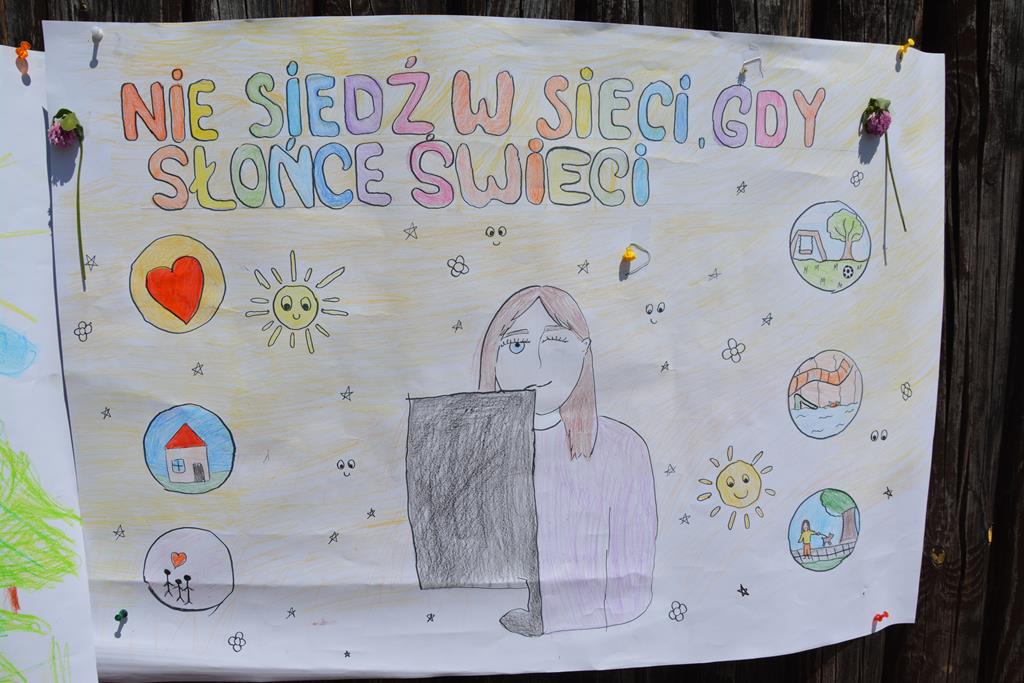 NIE SIEDŹ W SIECI, GDY
SŁOŃCE ŚWIECI